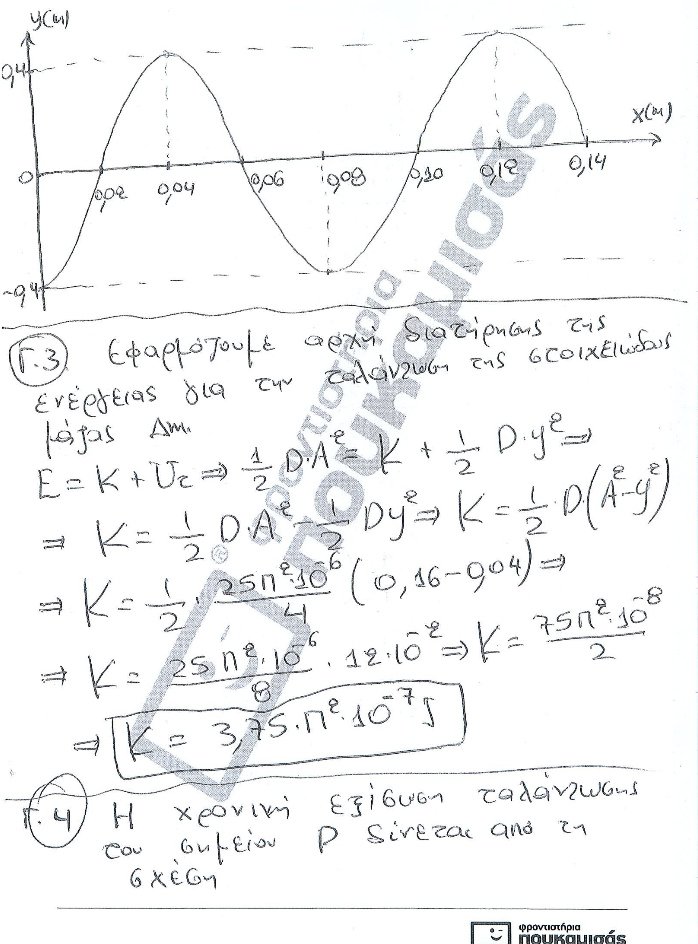 y(m)
0,4
x(m)
0
0,02 0,04 0,06 0,08 0,10 0,12 0,14
-0,4
Γ.3 Εφαρμόζουμε αρχή διατήρησης της
ενέργειας για την ταλάντωση της στοιχειώδους
μάζας Δm.
E = K + Uτ ⇒ 1/2 D·A² = K + 1/2 D·y² ⇒
⇒ K = 1/2 D·A² - 1/2 Dy² ⇒ K = 1/2 ·D(A²-y²)
⇒ K = 1/2 · 25π²·10⁻⁶/4 (0,16-0,04) ⇒
⇒ K = 25π²·10⁻⁶/8 · 12·10⁻² ⇒ K = 75π²·10⁻⁸/2
⇒ K = 3,75·π²·10⁻⁷ J
Γ.4 Η χρονική εξίσωση ταλάντωσης
του σημείου Ρ δίνεται από τη
σχέση
φροντιστήρια
πουκαμισάς
φροντιστήρια
πουκαμισάς